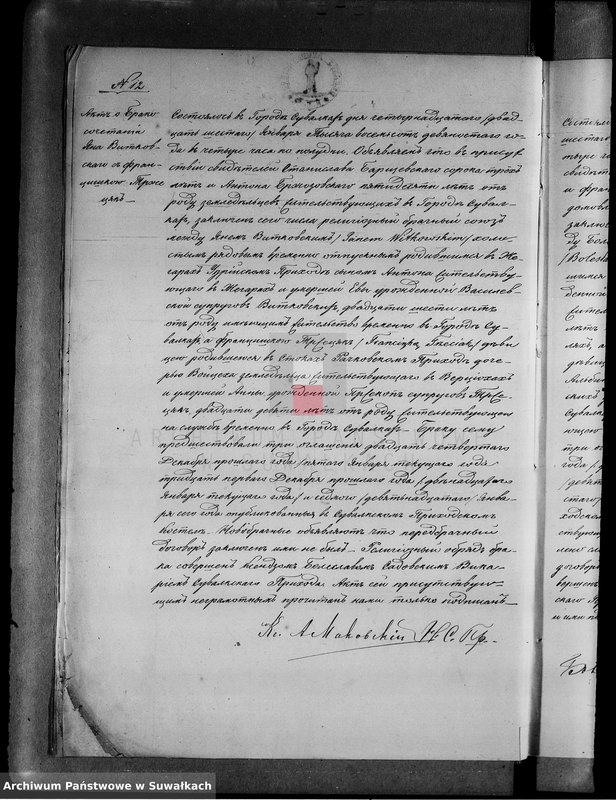 № 12
Актъ о брако
сочетанiи
Яна Витков-
скаго съ Фран-
цишкою Тросе
цякъ
Состоялось въ Городѣ Сувалкахъ дня четырнадцатаго /двад-
цать шестаго/ Января тысяча восемьсотъ девяностаго го-
да въ четыре часа по полудни. Объявляемъ что въ присутс-
твiи свидѣтелей Станислава сорока трехъ
лѣтъ и Антона пятидесяти лѣтъ отъ
роду земледѣльцевъ жительствующихъ въ Городѣ Сувал-
кахъ, заключенъ сего числа религiозный брачный союзъ
между Яномъ Витковскимъ /Janem Witkowskim/ холос-
тымъ рядовымъ временно отпускнымъ родившимся въ Же-
гарахъ Приходѣ сыномъ Антона жительству-
ющаго въ Жегарахъ и умершей Евы урожденной Василев-
ской супруговъ Витковскихъ, двадцати шести лѣтъ
отъ роду имѣющимъ жительство временно въ Городѣ Су-
валкахъ и Францишкою Тресцякъ /Franciszką Treściak/ дѣви-
цею родившеюся въ Стокахъ Рачковскомъ Приходѣ доче-
рью Войцеха земледѣльца жительствующаго въ
и умершей Анны урожденной супруговъ Трес-
цякъ, двадцати девяти лѣтъ отъ роду жительствующею
на службѣ временно въ Городѣ Сувалкахъ. Браку сему
предшествовали три оглашенiя двадцать четвертаго
Декабря прошлаго года /пятаго Января текущаго года
тридцать перваго Декабря прошлаго года /двѣнадцатаго
Января текущаго года/ и седьмого /девятьнадцатаго/ Янва-
ря сего года опубликованныя въ Сувалкскомъ Приходскомъ
костелѣ. Новобрачные объявляютъ что предбрачный
договоръ заключенъ ими не былъ. Религiозный обрядъ бра-
ка совершенъ Ксендзомъ Болеславомъ Садовскимъ Вика-
рiемъ Сувалкскаго Прихода. Актъ сей присутствую-
щимъ неграмотнымъ прочитанъ нами только подписанъ.
Кс. А Маковскiй Н. С. Пр.
Archiwum Państwowe w Suwałkach